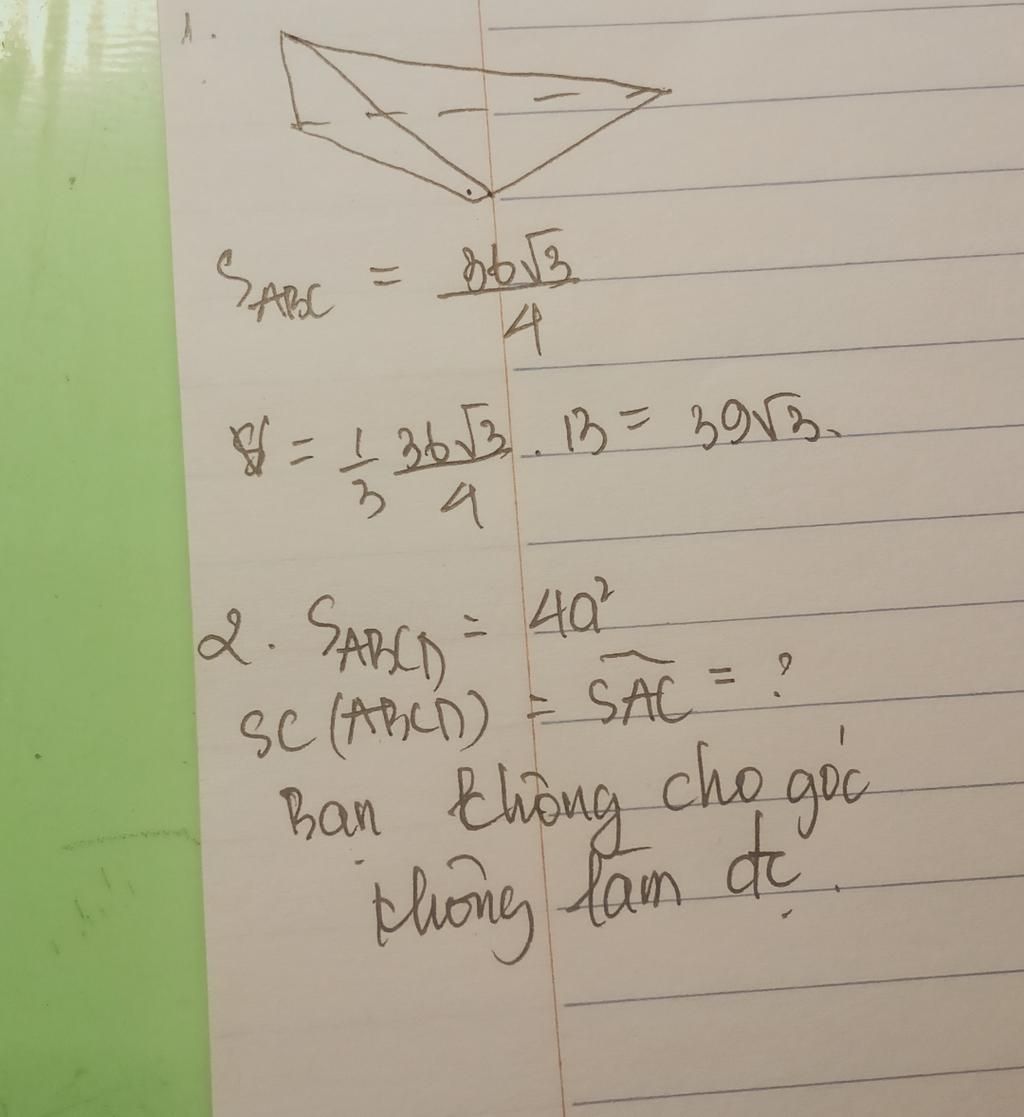 1.
S_ABC = 36√3/4
V = 1/3 36√3/4 . 13 = 39√3.
2. S_ABCD = 4a²
SC (ABCD) = SAC = ?
Bạn không cho góc
không làm đc.